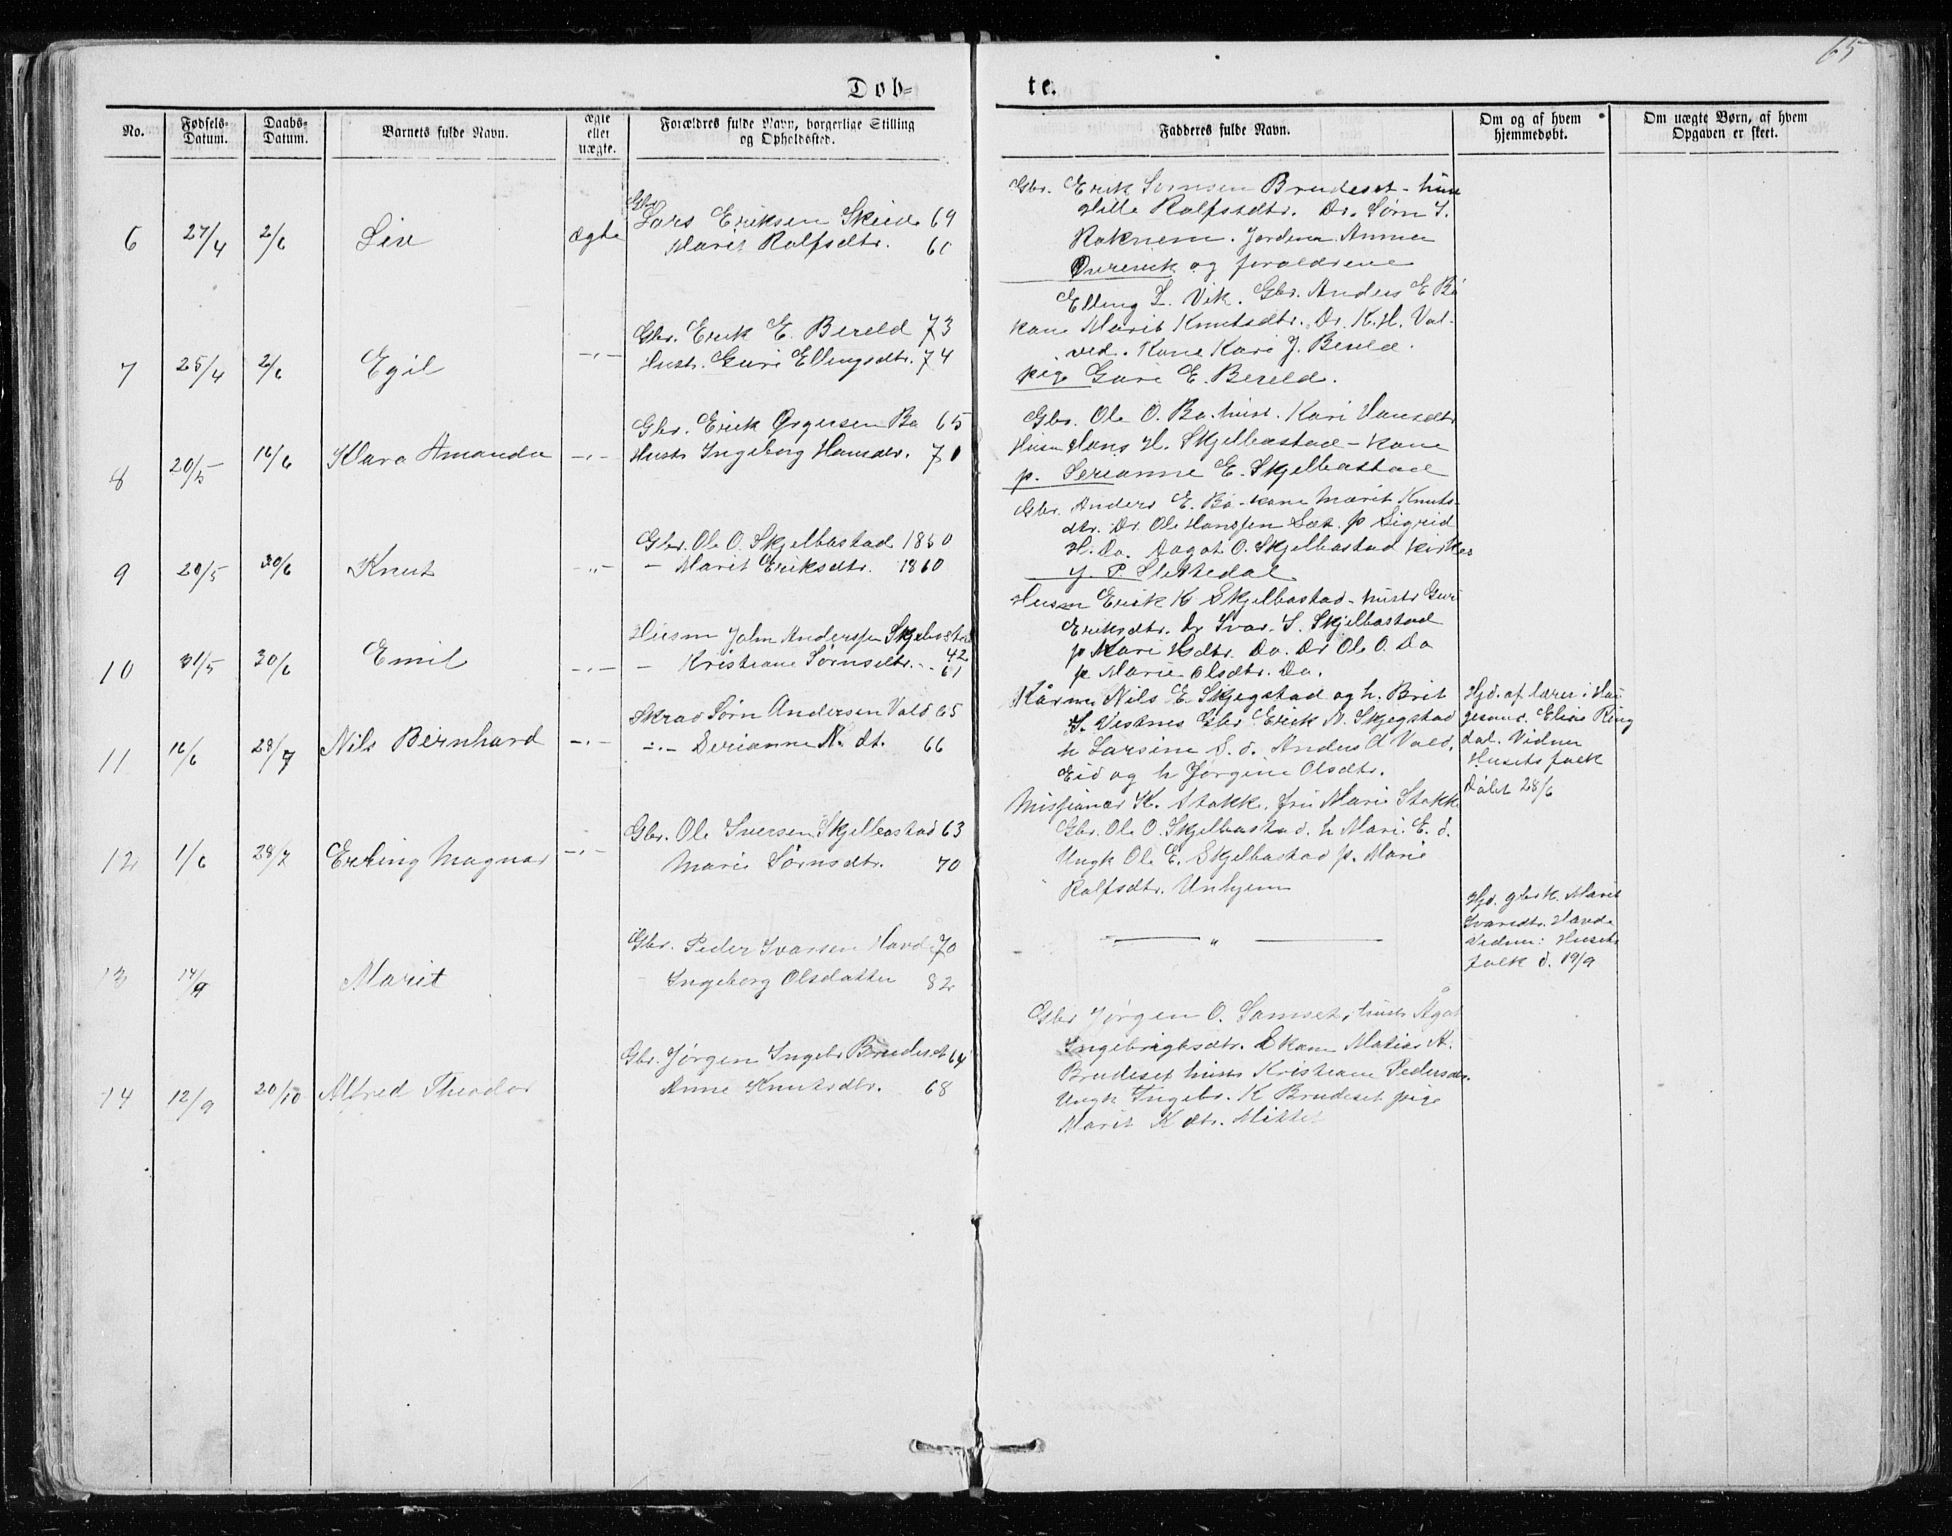 65
Døb-
te.
No.
Fødsels-
Datum.
Daabs-
Datum.
Barnets fulde Navn.
ægte
eller
uægte.
Forældres fulde Navn, borgerlige Stilling
og Opholdssted.
Fadderes fulde Navn.
Om og af hvem
hjemmedøbt.
Om uægte Børn, af hvem
Opgaven er skeet.
6
27/4
2/6
Liv
ægte
Gbr.
Lars Eriksen Skeid 69
Marit Rolfsdtr.
Gbr. Erik Sørnsen Brudeset -
Rolfsdtr. Dr. Sørn S.
Raknem. Jordm Anne
Øvrevik og forældrene
7
25/4
2/6
Egil
-"-
Gbr. Erik E. Bereld 73
Hustr. Guri Ellingsdtr. 74
Elling L. Vik. Gbr. Anders E Bø
kone Marit Knutsdtr. Dr. K. H. Vol-
ved. Kone Kari J. Bereld.
pige Guri E. Bereld.
8
20/5
16/6
Klara Amanda
-"-
Gbr. Erik Ørgersen Bø 65
Hustr Ingeborg Hansdtr. 71
Gbr. Ole O. Bø. hust. Kari Hansdtr
Husm Hans H. Skjelbostad - kone
p. Serianne E. Skjelbostad
9
20/5
30/6
Knut
-"-
Gbr. Ole O. Skjelbostad 1850
- Marit Eriksdtr. 1860
Gbr. Anders E. Bø - kone Marit Knuts-
dtr. Dr. Ole Hanssen Sæt. p Sigrid
H. Do. Dagot O. Skjelbostad kirkes
P. Slettedal
10
31/5
30/6
Emil
-"-
Husm John Anderssen Skjelbostad
42
- Kristiane Sørnsdtr. - 61
Husm Erik K Skjelbostad - hustr Guri
Eriksdtr. Dr Ivar. S. Skjelbostad
p Kari Hdtr. Do. Dr Ole O. Do
p Marie Olsdtr. Do.
11
16/6
28/7
Nils Bernhard
-"-
Skræd Sørn Andersen Vold 65
-"- Serianne N. dt. 66
Kårm Nils E. Skjegstad og h. Brit
S. Vestnes Gbr. Erik N. Skjegstad
h Larsine S. d. Anders A Vold,
Eid og h Jørgine Olsdtr.
Hjd. af lærer i Hau
gesund. Elias Ring
dal. Vidner
Husets folk
Døbt 28/6
12
1/6
28/7
Erling Magnar
-"-
Gbr. Ole Iversen Skjelbostad 63
Marie Sørnsdtr. 70
Missionær K. Stokke, fru Marie Stokke
Gbr. Ole O. Skjelbostad. h Mari. E. d.
Ungk Ole E. Skjelbostad p. Marie
Rolfsdtr. Unhjem
13
17/9
Marit
Gbr. Peder Ivarsen Havde 70
Ingeborg Olsdatter 82
"
Hjd. gbrk. Marit
Ivarsdtr. Havde
Vidner: Husets
folk d. 19/9
14
12/9
20/10
Alfred Theodor
Gbr. Jørgen Ingebr Brudeset 64
Anne Knutsdtr. 68
Gbr Jørgen O. Samset, hustr Ågat
Ingebrigtsdtr. Matias A.
Brudeset hustr Kristiane Pedersdtr.
Ungk Ingebr. K Brudeset pige
Marit K dtr. Mittet